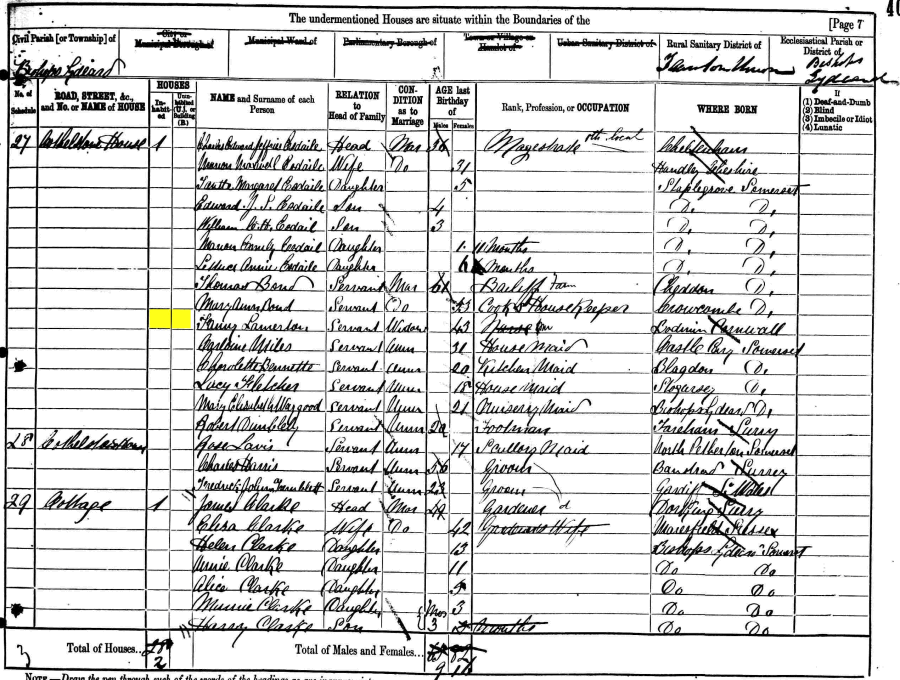 The undermentioned Houses are situate within the Boundaries of the
[Page 7
40
Civil Parish [or Township] of
City or Municipal Borough of
Municipal Ward of
Parliamentary Borough of
Town or Village or Hamlet of
Urban Sanitary District of
Rural Sanitary District of
Ecclesiastical Parish or District of
Bishops Lydeard
Taunton Union
Bishops Lydeard
No. of Schedule
ROAD, STREET, &c., and No. or NAME of HOUSE
HOUSES
In-habit-ed
Unin-habited (U.), or Building (B.)
NAME and Surname of each Person
RELATION to Head of Family
CON-DITION as to Marriage
AGE last Birthday of
Males
Females
Rank, Profession, or OCCUPATION
WHERE BORN
If
(1) Deaf-and-Dumb
(2) Blind
(3) Imbecile or Idiot
(4) Lunatic
27 House 1 Charles Edward Jeffries Esdaile Head Mar 36 Magistrate Cheltenham
Marion Maxwell Esdaile Wife Do 31 Handley Cheshire
Margaret Esdaile Daughter 5 Staplegrove Somerset
Edward J. S. Esdaile Son 4 D, D,
William Esdaile Son 3 D, D,
Marion Emily Esdaile Daughter 1. 11 Months D, D,
Annie Esdaile Daughter 6 Months D, D,
Thomas Bond Servant Mar 61 Bailiff Farm Cheddon D,
Mary Ann Bond Servant Do 53 Cook & Housekeeper Crowcombe D,
Fanny Lamerton Servant Widow 43 Bodmin Cornwall
Caroline Miles Servant Unm 31 House Maid Castle Cary Somerset
Charlotte Bennetts Servant Unm 20 Kitchen Maid Blagdon D,
Lucy Fletcher Servant Unm 18 House Maid Stogursey D,
Mary Elizabeth Wargood Servant Unm 21 Nursery Maid Bishops Lydeard D,
Robert Dumbley Servant Unm 20 Footman Fareham Surrey
28 Rose Davis Servant Unm 17 Scullery Maid North Petherton Somerset
Charles Harris Servant Unm 56 Groom Surrey
Fredrick John Servant Unm 23 Groom Cardiff S. Wales
29 Cottage 1 James Clarke Head Mar 49 Gardener d Dorking Surry
Eliza Clarke Wife Do 42 Gardeners Wife Maresfield Sussex
Helen Clarke Daughter 13 Bishops Lydeard Somerset
Annie Clarke Daughter 11 Do Do
Alice Clarke Daughter 5 Do Do
Minnie Clarke Daughter 3 Do Do
Harry Clarke Son Mos 3 Months Do Do
3 Total of Houses... 2
Total of Males and Females... 9 16
NOTE.—Draw the pen through such of the words of the headings as are inappropriate